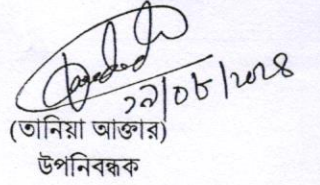 ২৯/০৮/২০২৪
(তানিয়া আক্তার)
উপনিবন্ধক